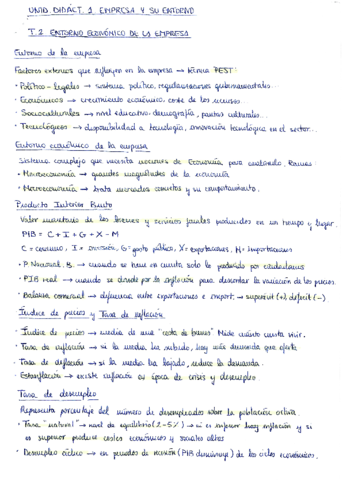 UNID DIDÁCT. 1 EMPRESA Y SU ENTORNO
T.2 ENTORNO ECONÓMICO DE LA EMPRESA
Entorno de la empresa
Factores externos que influyen en la empresa → técnica PEST:
· Político-legales → sistema político, regulaciones gubernamentales...
· Económicos → crecimiento económico, coste de los recursos
· Socioculturales → nivel educativo, demografía, pautas culturales...
· Tecnológicos → disponibilidad a tecnología, innovación tecnológica en el sector...
Entorno económico de la empresa
Sistema complejo que necesita nociones de Economía para analizarlo. Ramas:
· Macroeconomía → grandes magnitudes de la economía
· Microeconomía → trata mercados concretos y su comportamiento.
Producto Interior Bruto
Valor monetario de los bienes y servicios finales producidos en un tiempo y lugar.
PIB = C + I + G + X - M
C = consumo, I = inversión, G = gasto público, X = exportaciones, M = importaciones
· P. Nacional. B. → cuando se tiene en cuenta solo lo producido por ciudadanos
· PIB real → cuando se divide por la inflación para descontar la variación de los precios.
· Balanza comercial → diferencia entre exportaciones e import. → superávit (+) déficit (-)
Índice de precios y Tasa de inflación
· Índice de precios → media de una "cesta de bienes" Mide cuánto cuesta vivir.
· Tasa de inflación → si la media ha subido, hay más demanda que oferta
· Tasa de deflación → si la media ha bajado, reduce la demanda.
· Estanflación → existe inflación en época de crisis y desempleo.
Tasa de desempleo
Representa porcentaje del número de desempleados sobre la población activa.
· Tasa "natural" → nivel de equilibrio (2-5%) → si es inferior hay inflación y si
es superior produce costes económicos y sociales altos
· Desempleo cíclico → en periodos de recesión (PIB disminuye) de los ciclos económicos.